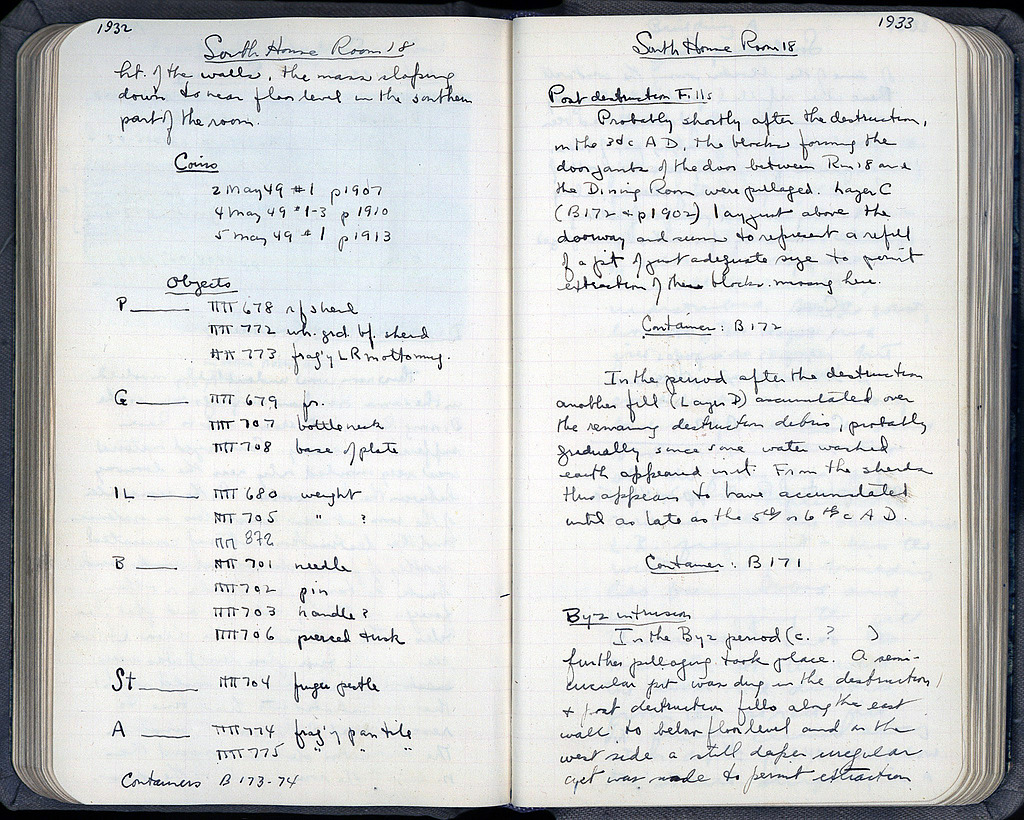 1932
South House Room 18
ht. of the walls, the mass sloping
down to near floor level in the southern
part of the room.
Coins
2 May 49 #1 p 1907
4 May 49 #1-3 p 1910
5 May 49 #1 p 1913
Objects
P ΠΠ 678 rf sherd
ΠΠ 772 wh. grd. bf. sherd
ΠΠ 773 frag'y L R
G ΠΠ 679 fr.
ΠΠ 707 bottle neck
ΠΠ 708 base of plate
IL ΠΠ 680 weight
ΠΠ 705 " ?
ΠΠ 872
B ΠΠ 701 needle
ΠΠ 702 pin
ΠΠ 703 handle?
ΠΠ 706 pierced tusk
St ΠΠ 704 finger pestle
A ΠΠ 774 frag'y pan tile
ΠΠ 775 " " "
Containers B 173-74
1933
South House Room 18
Post destruction Fills
Probably shortly after the destruction,
in the 3d c AD, the blocks forming the
door jambs of the door between Rm 18 and
the Dining Room were pillaged. Layer C
(B172 + p 1902) lay just above the
doorway and seems to represent a refill
of a pit of just adequate size to permit
extraction of these blocks missing here.
Container: B 172
In the period after the destruction
another fill (Layer D) accumulated over
the remaining destruction debris, probably
gradually since some water washed
earth appeared in it. From the sherds
this appears to have accumulated
until as late as the 5th or 6th c AD.
Container: B 171
Byz intrusion
In the Byz period (c. ? )
further pillaging took place. A semi-
circular pit was dug in the destruction
+ post destruction fills along the east
wall to below floor level and on the
west side a still deeper irregular
was made to permit extraction